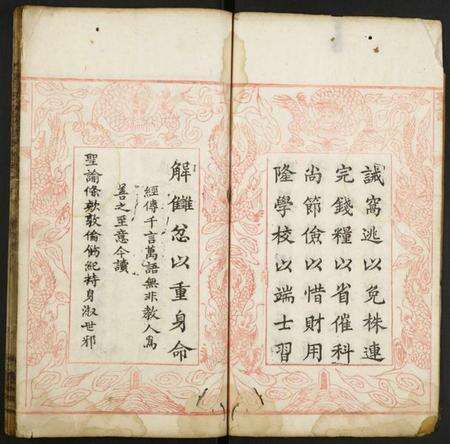 誡窩逃以免株連
完錢糧以省催科
尚節儉以惜財用
隆學校以端士習
解讎忿以重身命
經傳千言萬語無非教人爲
善之至意今讀
聖諭條欵敦倫飭紀持身淑世邪